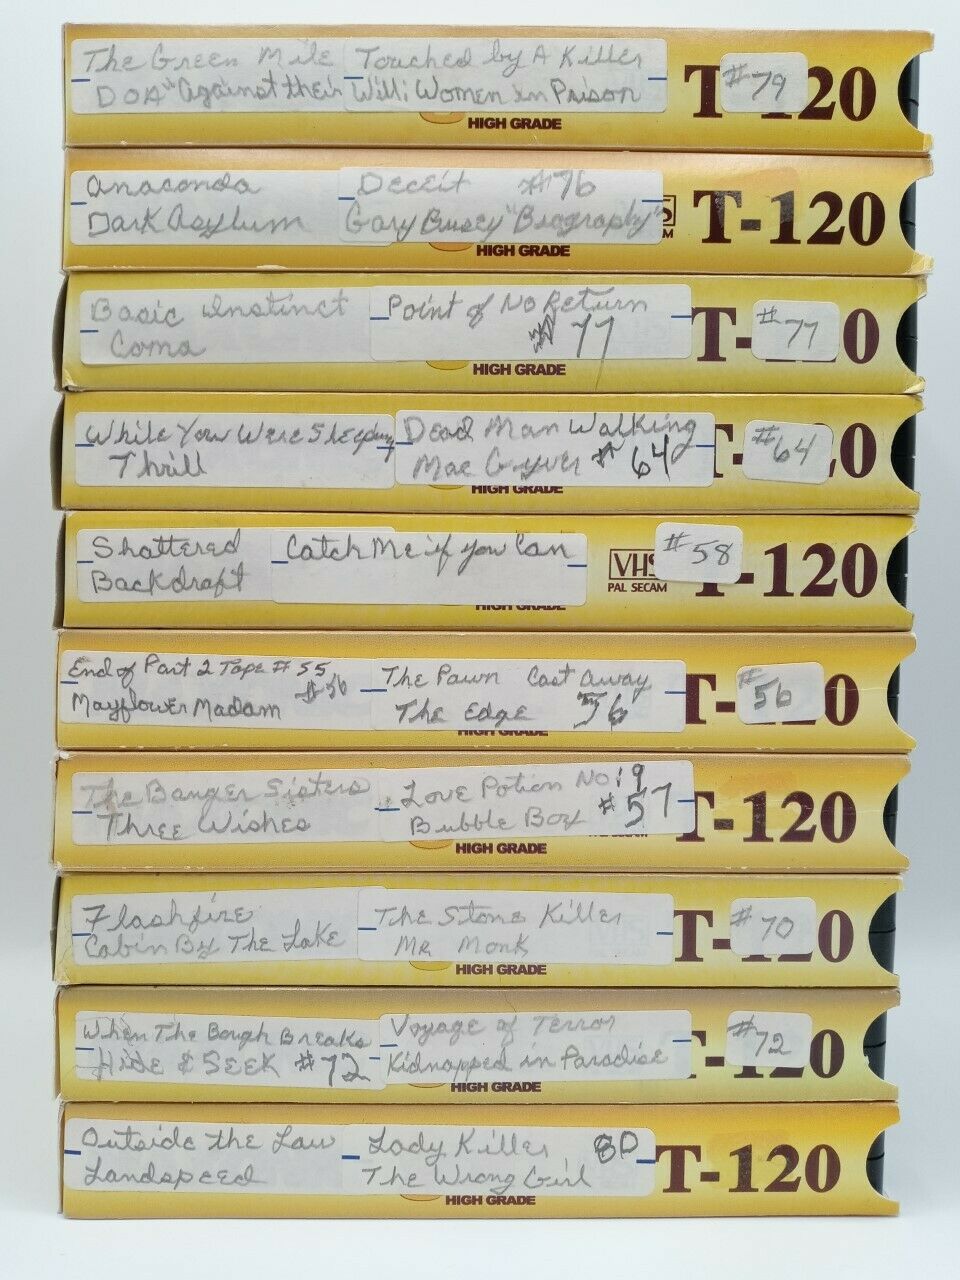 The Green Mile Touched by A Killer
DOA "Against their Will: Women in Prison
T-120
#79
HIGH GRADE
Anaconda Deceit #76
Dark Asylum Gary Busey "Biography"
T-120
HIGH GRADE
Basic Instinct Point of No Return
Coma #77
T-120
#77
HIGH GRADE
While You Were Sleeping Dead Man Walking
Thrill Mac Gyver #64
T-120
#64
HIGH GRADE
Shattered Catch Me if you Can
Backdraft
VHS
PAL SECAM
#58
T-120
HIGH GRADE
End of Part 2 Tape #55 The Pawn Cast Away
Mayflower Madam #56 The Edge 56
T-120
#56
HIGH GRADE
The Banger Sisters Love Potion No: 9
Three Wishes Bubble Boy #57
T-120
HIGH GRADE
Flashfire The Stone Killer
Cabin By The Lake Mr Monk
T-120
#70
HIGH GRADE
When The Bough Breaks Voyage of Terror
Hide & Seek #72 Kidnapped in Paradise
T-120
#72
HIGH GRADE
Outside the Law Lady Killer 80
Landspeed The Wrong Girl
T-120
HIGH GRADE